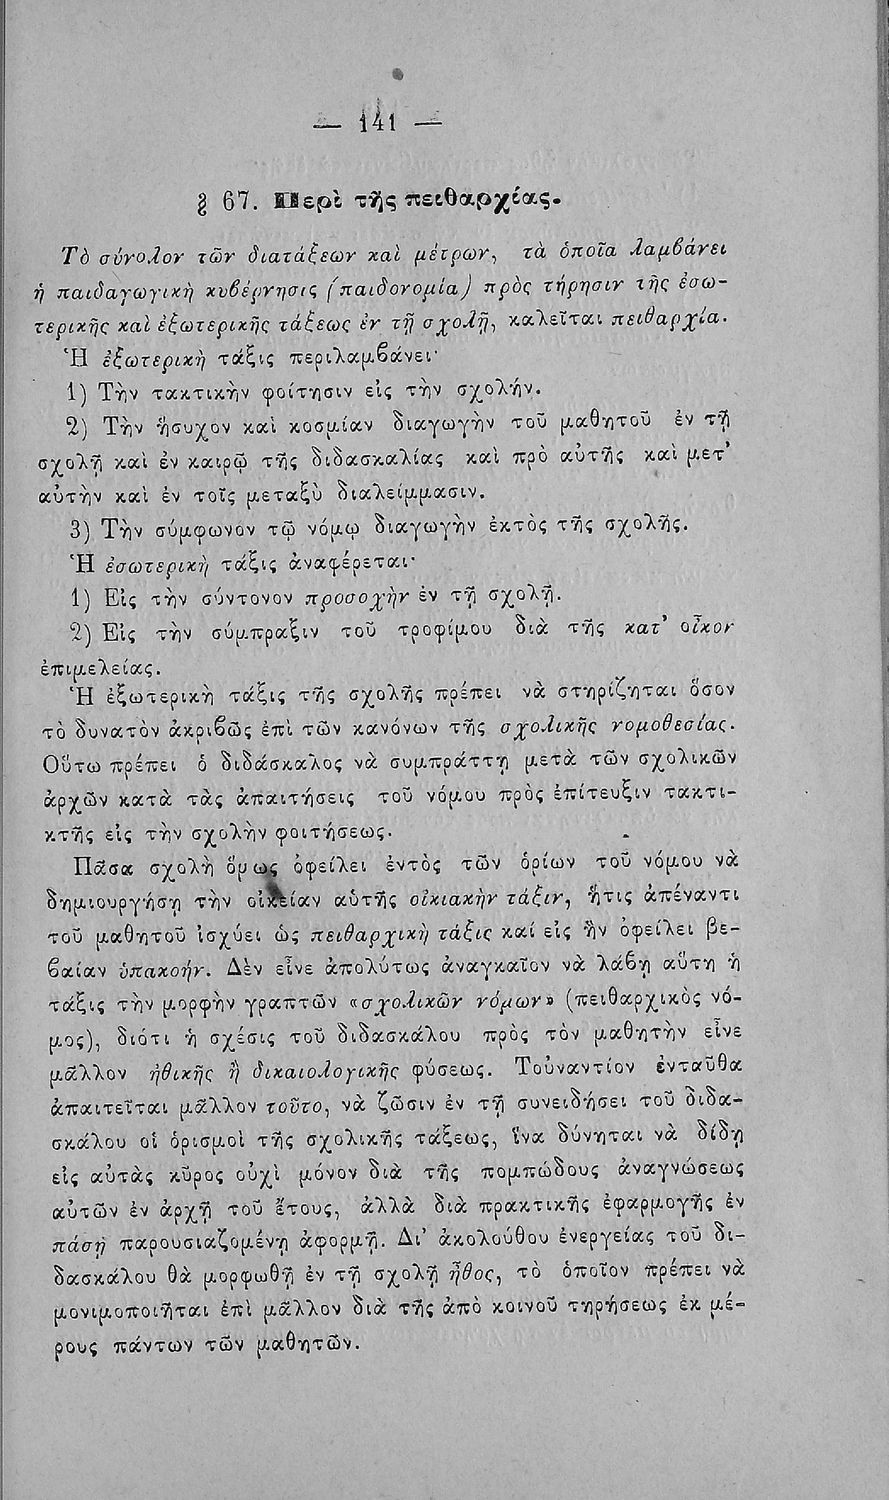 — 141 —
§ 67. Περὶ τῆς πειθαρχίας.
Τὸ σύνολον τῶν διατάξεων καὶ μέτρων, τὰ ὁποῖα λαμβάνει
ἡ παιδαγωγικὴ κυβέρνησις (παιδονομία) πρὸς τήρησιν τῆς ἐσω-
τερικῆς καὶ ἐξωτερικῆς τάξεως ἐν τῇ σχολῇ, καλεῖται πειθαρχία.
Ἡ ἐξωτερικὴ τάξις περιλαμβάνει·
1) Τὴν τακτικὴν φοίτησιν εἰς τὴν σχολήν.
2) Τὴν ἥσυχον καὶ κοσμίαν διαγωγὴν τοῦ μαθητοῦ ἐν τῇ
σχολῇ καὶ ἐν καιρῷ τῆς διδασκαλίας καὶ πρὸ αὐτῆς καὶ μετ’
αὐτὴν καὶ ἐν τοῖς μεταξὺ διαλείμμασιν.
3) Τὴν σύμφωνον τῷ νόμῳ διαγωγὴν ἐκτὸς τῆς σχολῆς.
Ἡ ἐσωτερικὴ τάξις ἀναφέρεται·
1) Εἰς τὴν σύντονον προσοχὴν ἐν τῇ σχολῇ.
2) Εἰς τὴν σύμπραξιν τοῦ τροφίμου διὰ τῆς κατ’ οἶκον
ἐπιμελείας.
Ἡ ἐξωτερικὴ τάξις τῆς σχολῆς πρέπει νὰ στηρίζηται ὅσον
τὸ δυνατὸν ἀκριβῶς ἐπὶ τῶν κανόνων τῆς σχολικῆς νομοθεσίας.
Οὕτω πρέπει ὁ διδάσκαλος νὰ συμπράττῃ μετὰ τῶν σχολικῶν
ἀρχῶν κατὰ τὰς ἀπαιτήσεις τοῦ νόμου πρὸς ἐπίτευξιν τακτι-
κτῆς εἰς τὴν σχολὴν φοιτήσεως.
Πᾶσα σχολὴ ὅμως ὀφείλει ἐντὸς τῶν ὁρίων τοῦ νόμου νὰ
δημιουργήσῃ τὴν οἰκείαν αὑτῆς οἰκιακὴν τάξιν, ἥτις ἀπέναντι
τοῦ μαθητοῦ ἰσχύει ὡς πειθαρχικὴ τάξις καί εἰς ἣν ὀφείλει βε-
βαίαν ὑπακοήν. Δὲν εἶνε ἀπολύτως ἀναγκαῖον νὰ λάβῃ αὕτη ἡ
τάξις τὴν μορφὴν γραπτῶν «σχολικῶν νόμων» (πειθαρχικὸς νό-
μος), διότι ἡ σχέσις τοῦ διδασκάλου πρὸς τὸν μαθητὴν εἶνε
μᾶλλον ἠθικῆς ἢ δικαιολογικῆς φύσεως. Τοὐναντίον ἐνταῦθα
ἀπαιτεῖται μᾶλλον τοῦτο, νὰ ζῶσιν ἐν τῇ συνειδήσει τοῦ διδα-
σκάλου οἱ ὁρισμοὶ τῆς σχολικῆς τάξεως, ἵνα δύνηται νὰ δίδῃ
εἰς αὐτὰς κῦρος οὐχὶ μόνον διὰ τῆς πομπώδους ἀναγνώσεως
αὐτῶν ἐν ἀρχῇ τοῦ ἔτους, ἀλλὰ διὰ πρακτικῆς ἐφαρμογῆς ἐν
πάσῃ παρουσιαζομένῃ ἀφορμῇ. Δι’ ἀκολούθου ἐνεργείας τοῦ δι-
δασκάλου θὰ μορφωθῇ ἐν τῇ σχολῇ ἦθος, τὸ ὁποῖον πρέπει νὰ
μονιμοποιῆται ἐπὶ μᾶλλον διὰ τῆς ἀπὸ κοινοῦ τηρήσεως ἐκ μέ-
ρους πάντων τῶν μαθητῶν.